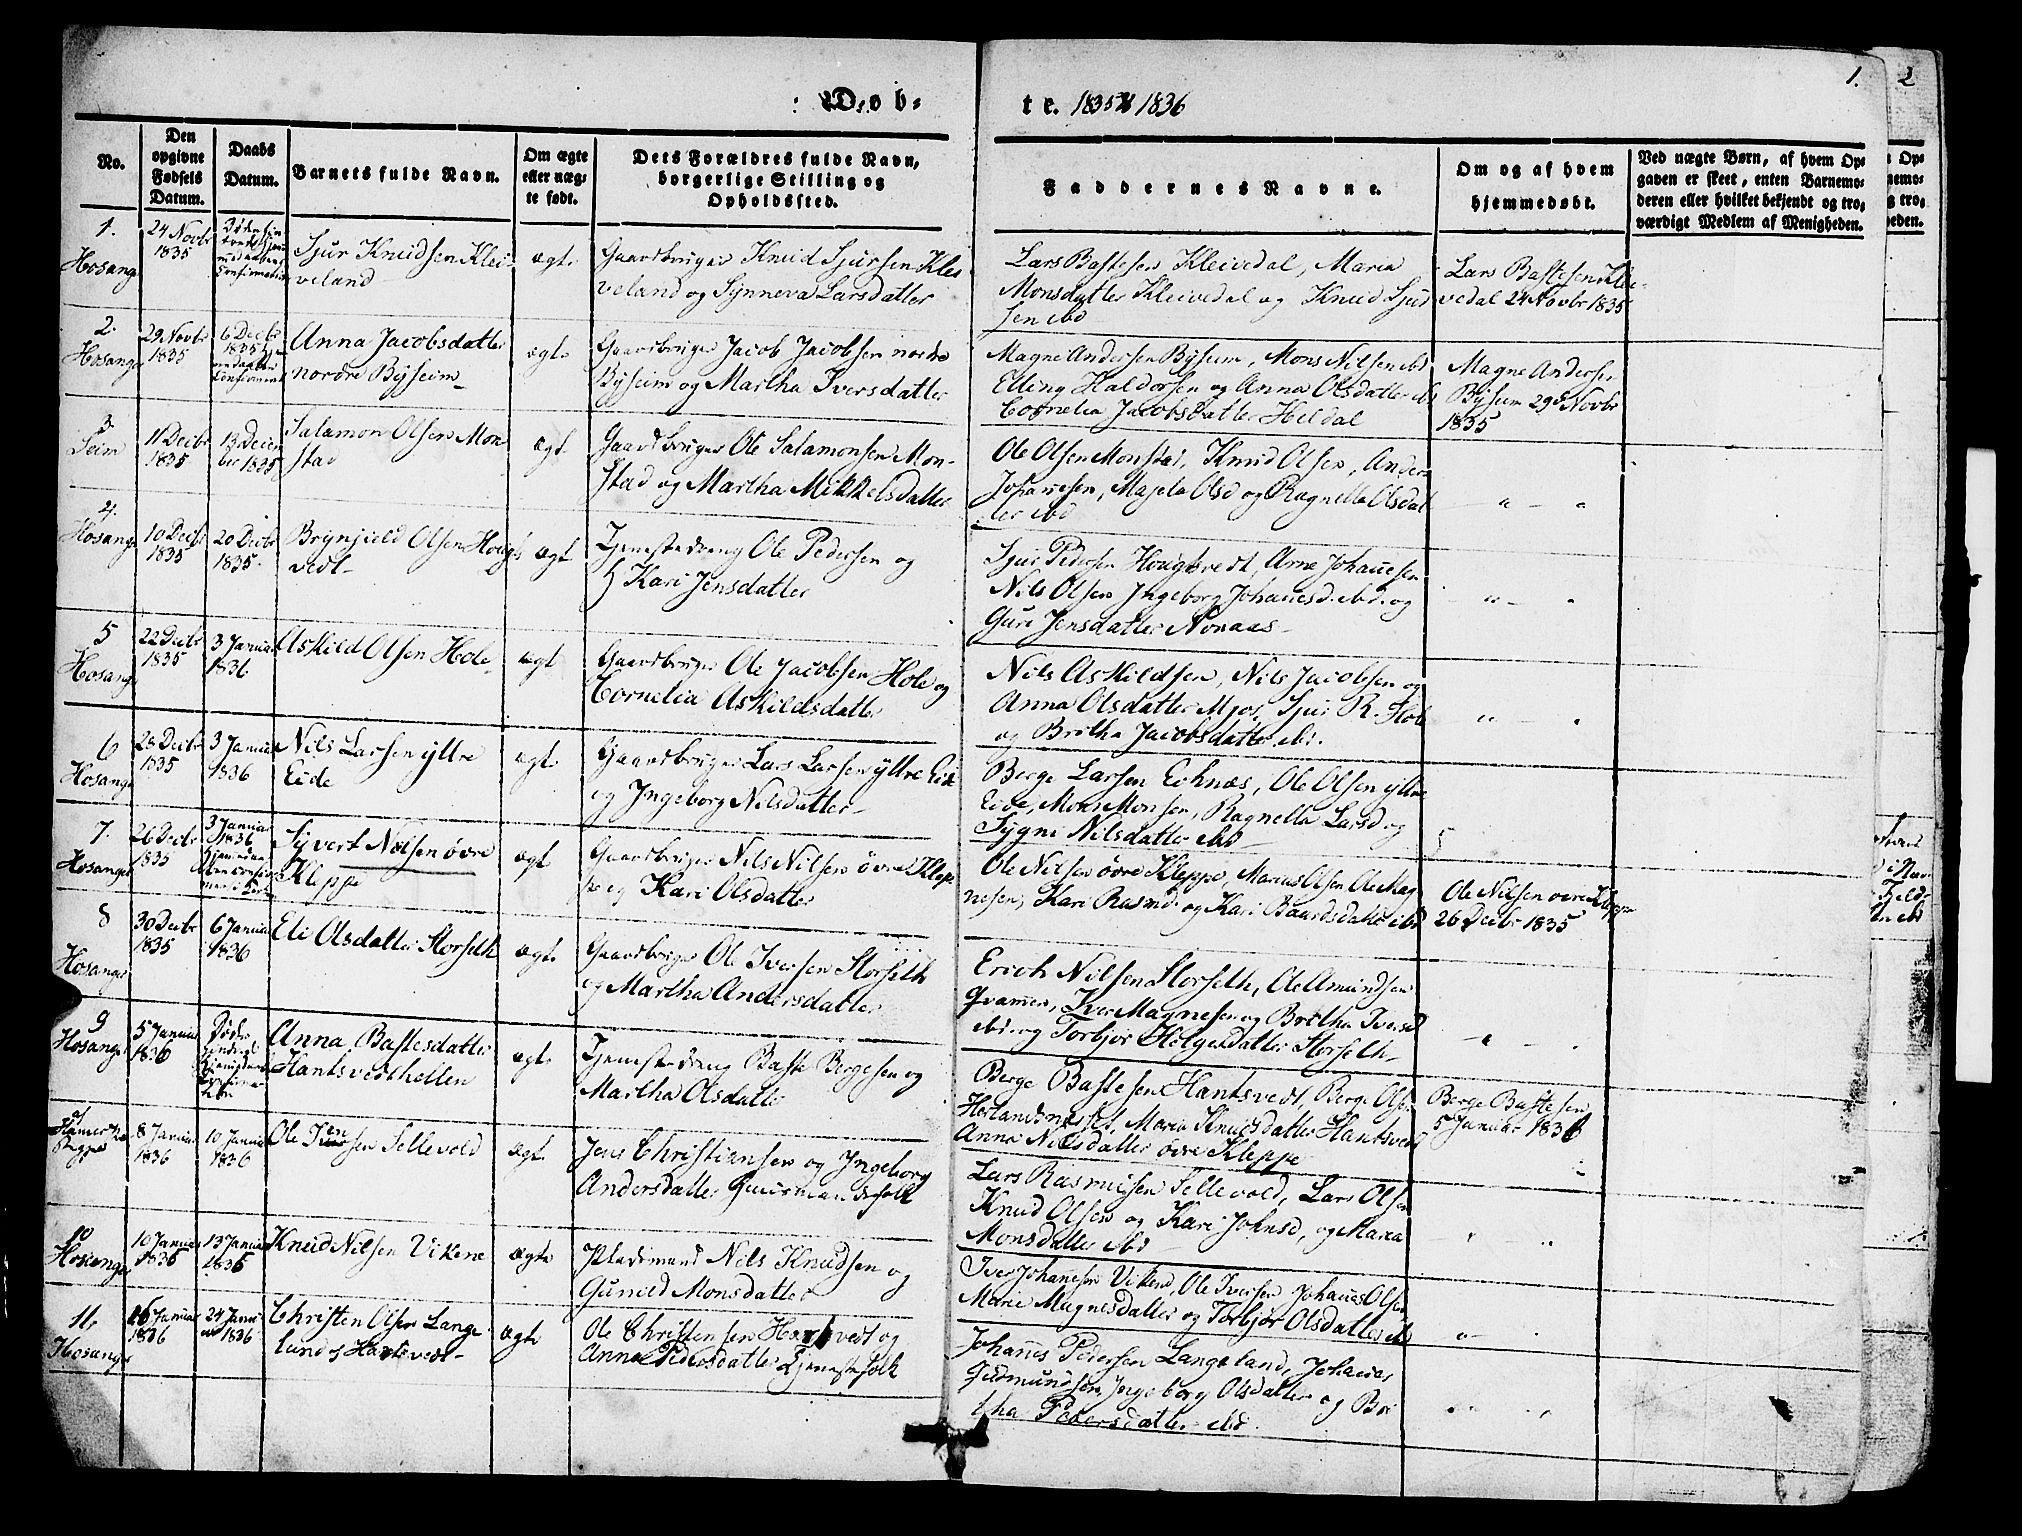 Døb-
te. 1835 & 1836
1.
2
No.
Den
opgivne
Fødsels
Datum.
Daabs
Datum.
Barnets fulde Navn.
Om ægte
eller næg-
te født.
Dets Forældres fulde Navn,
borgerlige Stilling og
Opholdssted.
Faddernes Navne.
Om og af hvem
hjemmedøbt.
Ved nægte Børn, af hvem Op-
gaven er skeet, enten Barnemo-
deren eller hvilket bekjendt og tro-
værdigt Medlem af Menigheden.
1.
Hosanger
24 Novbr
1835
Sjur Knudsen Klei-
veland
ægte
Gaardbruger Knud Sjursen Klei
veland og Synneva Larsdatter
Lars Bastesen Kleivedal, Maria
Monsdatter Kleivedal og Knud Sjur
sen ibd
Lars Bastesen Klei-
vedal 24 Novbr 1835
2.
Hosanger
29 Novbr
1835
6 Decbr
1835
Anna Jacobsdatter
nordre Byseim
ægte
Gaardbruger Jacob Jacobsen nordre
Byseim og Martha Iversdatter
Magne Andersen Byseim, Mons Nilsen ibd
Elling Haldorsen og Anna Olsdatter ibd
Cornelia Jacobsdatter Heldal
Magne Andersen
Byseim 29 Novbr
1835
3.
Seim
11 Decbr
1835
13 Decem
ber 1835
Salamon Olsen Mon
stad
ægte
Gaardbruger Ole Salamonsen Mon-
stad og Martha Mikkelsdatter
Ole Olsen Monstad, Knud Olsen, Anders
Johannesen, Magela Olsd og Ragnella Olsdat
ter ibd
4.
Hosanger
10 Decbr
1835
20 Decbr
1835.
Brynjeld Olsen Houg
vedt
ægte
Tjenestedreng Ole Pedersen og
Kari Jensdatter
Sjur Pedersen Hougsvedt, Arne Johannesen
Nils Olsen Ingeborg Johannesd. ibd. og
Guri Jensdatter Nonaas
5
Hosanger
22 Decbr
1835
3 Januar
1836
Askild Olsen Hole
ægte
Gaardbruger Ole Jacobsen Hole og
Cornelia Askildsdatter
Nils Askildsen, Nils Jacobsen og
Anna Olsdatter Mjøs, Sjur R. Hole
og Britha Jacobsdatter ibd.
6
Hosanger
28 Decbr
1835
3 Januar
1836
Nils Larsen yttre
Eide
ægte
Gaardbruger Lars Larsen yttre Eide
og Ingeborg Nilsdatter
Berge Larsen Eknæs, Ole Olsen yttre
Eide, Mons Monsen, Ragnella Larsd og
Sygni Nilsdatter ibd
7.
Hosanger
26 Decbr
1835
3 Januar
1836
Syvert Nilsen øvre
Kleppe
ægte
Gaardbruger Nils Nilsen øvre Klep
pe og Kari Olsdatter
Ole Nilsen øvre Kleppe, Marcus Olsen Ole Mag
nesen, Kari Rasmd. og Kari Baardsdatter ibd
Ole Nilsen øvre Kleppe
26 Decbr 1835
8
Hosanger
30 Decbr
1835
6 Januar
1836
Eli Olsdatter Storseth
ægte
Gaardbruger Ole Iversen Storseth
og Martha Andersdatter
Erich Nilsen Storseth, Ole Amundsen
Qvamen, Iver Magnesen og Britha Iversd
ibd. og Torbjør Helgesdatter Storseth
9
Hosanger
5 Januar
1836
Anna Bastesdatter
Hantsvedthellen
ægte
Tjenestedreng Baste Bergesen og
Martha Olsdatter
Berge Bastesen Hantsvedt, Berge Olsen
Herlandsnæset, Maria Knudsdatter Hantsvedt
Anna Nilsdatter øvre Kleppe
Berge Bastesen
5 Januar 1836
8 Januar
1836
10 Januar
1836
Ole Jensen Sellevold
ægte
Jens Christiansen og Ingeborg
Andersdatter Huusmandsfolk
Lars Rasmusen Sellevold, Lars Olsen
Knud Olsen og Kari Johnsd, og Maria
Monsdatter ibd
10
Hosanger
10 Januar
1836
13 Januar
1836
Knud Nilsen Vikene
ægte
Pladsmand Nils Knudsen og
Gunild Monsdatter
Iver Johannesen Vikene, Ole Iversen Johannes Olsen
Marie Magnesdatter og Torbjør Olsdatter ibd
11.
Hosanger
16 Januar
1836
24 Janu
ar 1836
Christen Olsen Lange
land
ægte
Ole Christensen Hartvedt og
Anna Pedersdatter Tjenestefolk
Johannes Pedersen Langeland, Johannes
Gudmundsen, Ingeborg Olsdatter og Bri
tha Pedersdatter ibd.